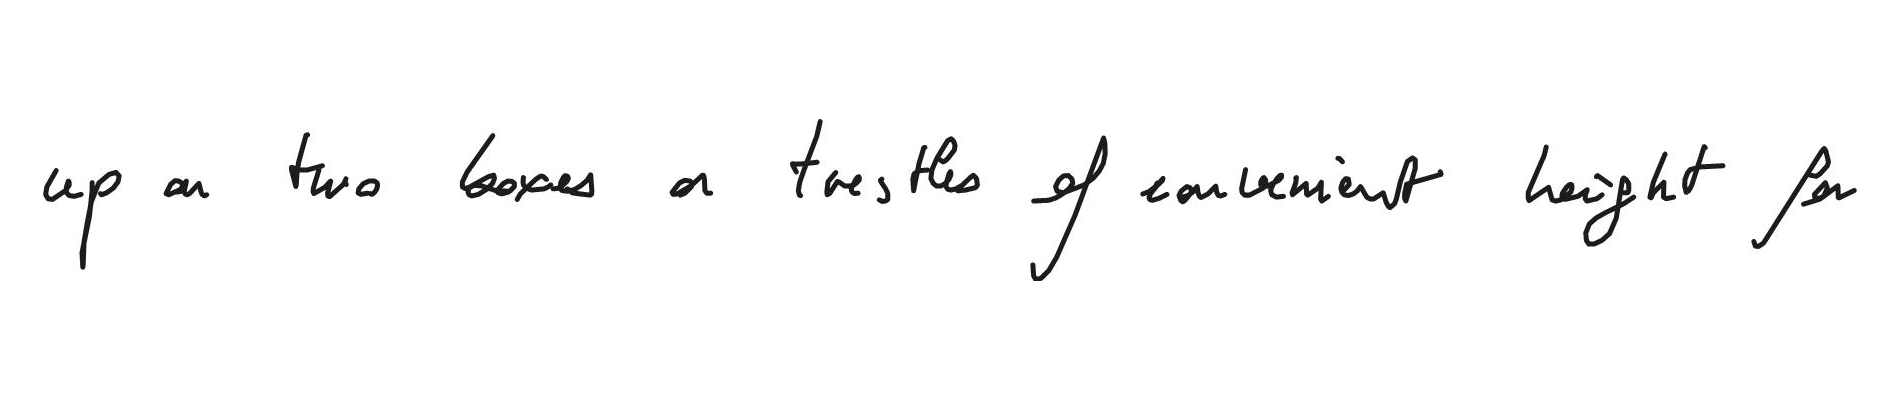 up on two boxes or trestles of convenient height for